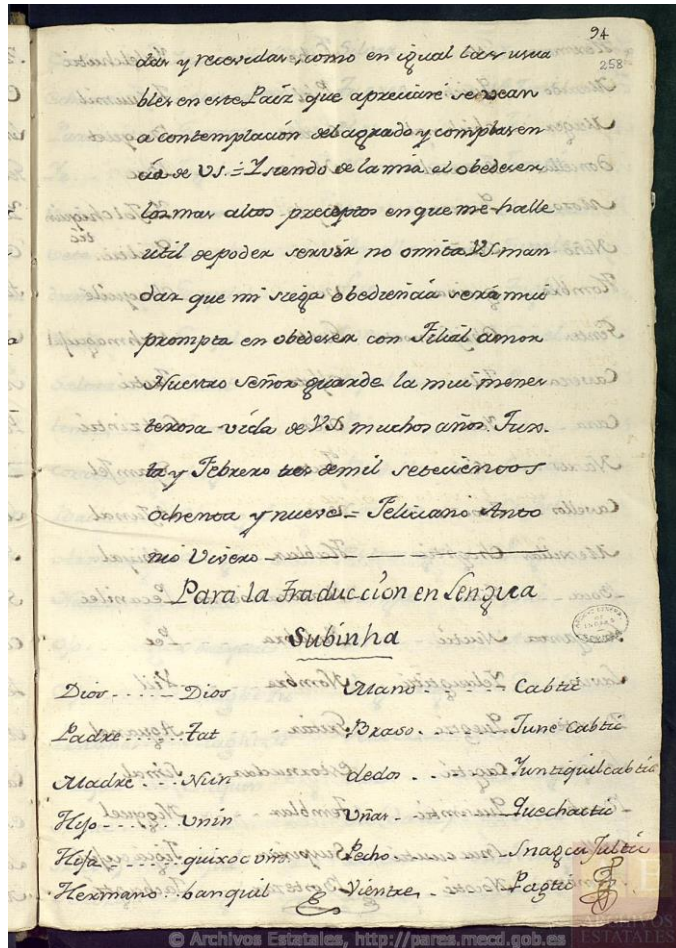 94
258
das y recevidas, como en igual las usua
bles en este Paíz que apreciaré se vean
a contemplación del agrado y complasen
cia de VS. = Y siendo de la mia el obedeser
los mas altos preceptos en que me halle
util de poder servir no omita VS man
dar que mi siega obediencia será mui
prompta en obedeser con Filial amor
Nuestro Señor guarde la mui menes
terosa vida de VS muchos años. Tux
ta y Febrero tres de mil setecientos
ochenta y nueve = Feliciano Anto
nio Vivero
Para la Traduccion en Lengua
Subinha
Dios - Dios
Padre - Tat
Madre - Nun
Hijo - Unin
Hija - quixoc unin
Hermano - banquil
Mano - Cabtic
Braso - June cabtic
dedos - Yuntiquilcabtic
Uñas - Quechactic
Pecho - Snagca Jultic
Vientre - Pagtic
© Archivos Estatales, http://pares.mecd.gob.es